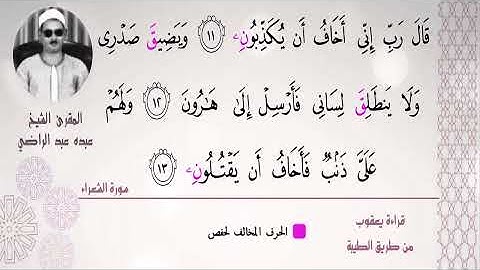 قَالَ رَبِّ إِنِّىٓ أَخَافُ أَن يُكَذِّبُونِۦ ١١ وَيَضِيقَ صَدْرِى
وَلَا يَنطَلِقَ لِسَانِى فَأَرْسِلْ إِلَىٰ هَـٰرُونَ ١٢ وَلَهُمْ
عَلَىَّ ذَنۢبٌ فَأَخَافُ أَن يَقْتُلُونِۦ ١٣
المقرئ الشيخ
عبده عبد الراضي
سورة الشعراء
الحرف المخالف لحفص
قراءة يعقوب
من طريق الطيبة